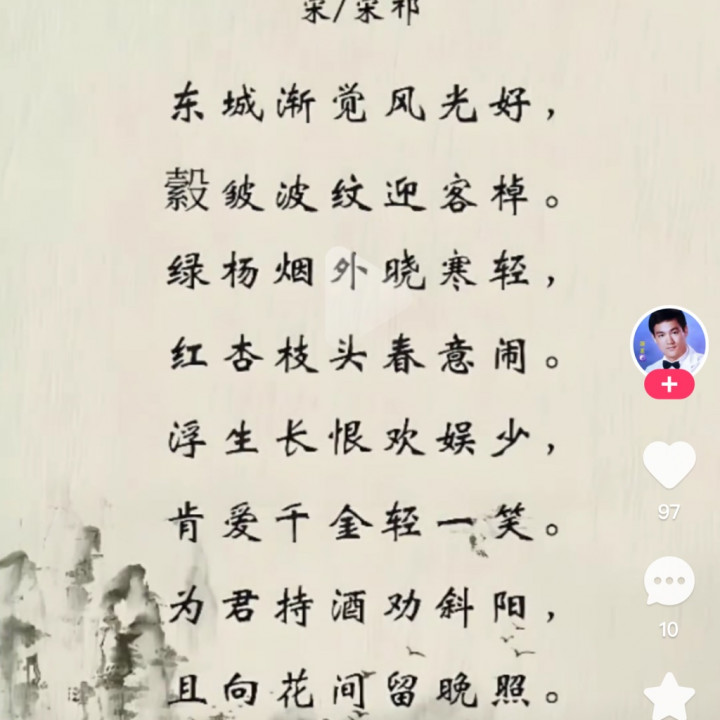 宋/宋祁
东城渐觉风光好，
縠皱波纹迎客棹。
绿杨烟外晓寒轻，
红杏枝头春意闹。
浮生长恨欢娱少，
肯爱千金轻一笑。
为君持酒劝斜阳，
且向花间留晚照。
97
10